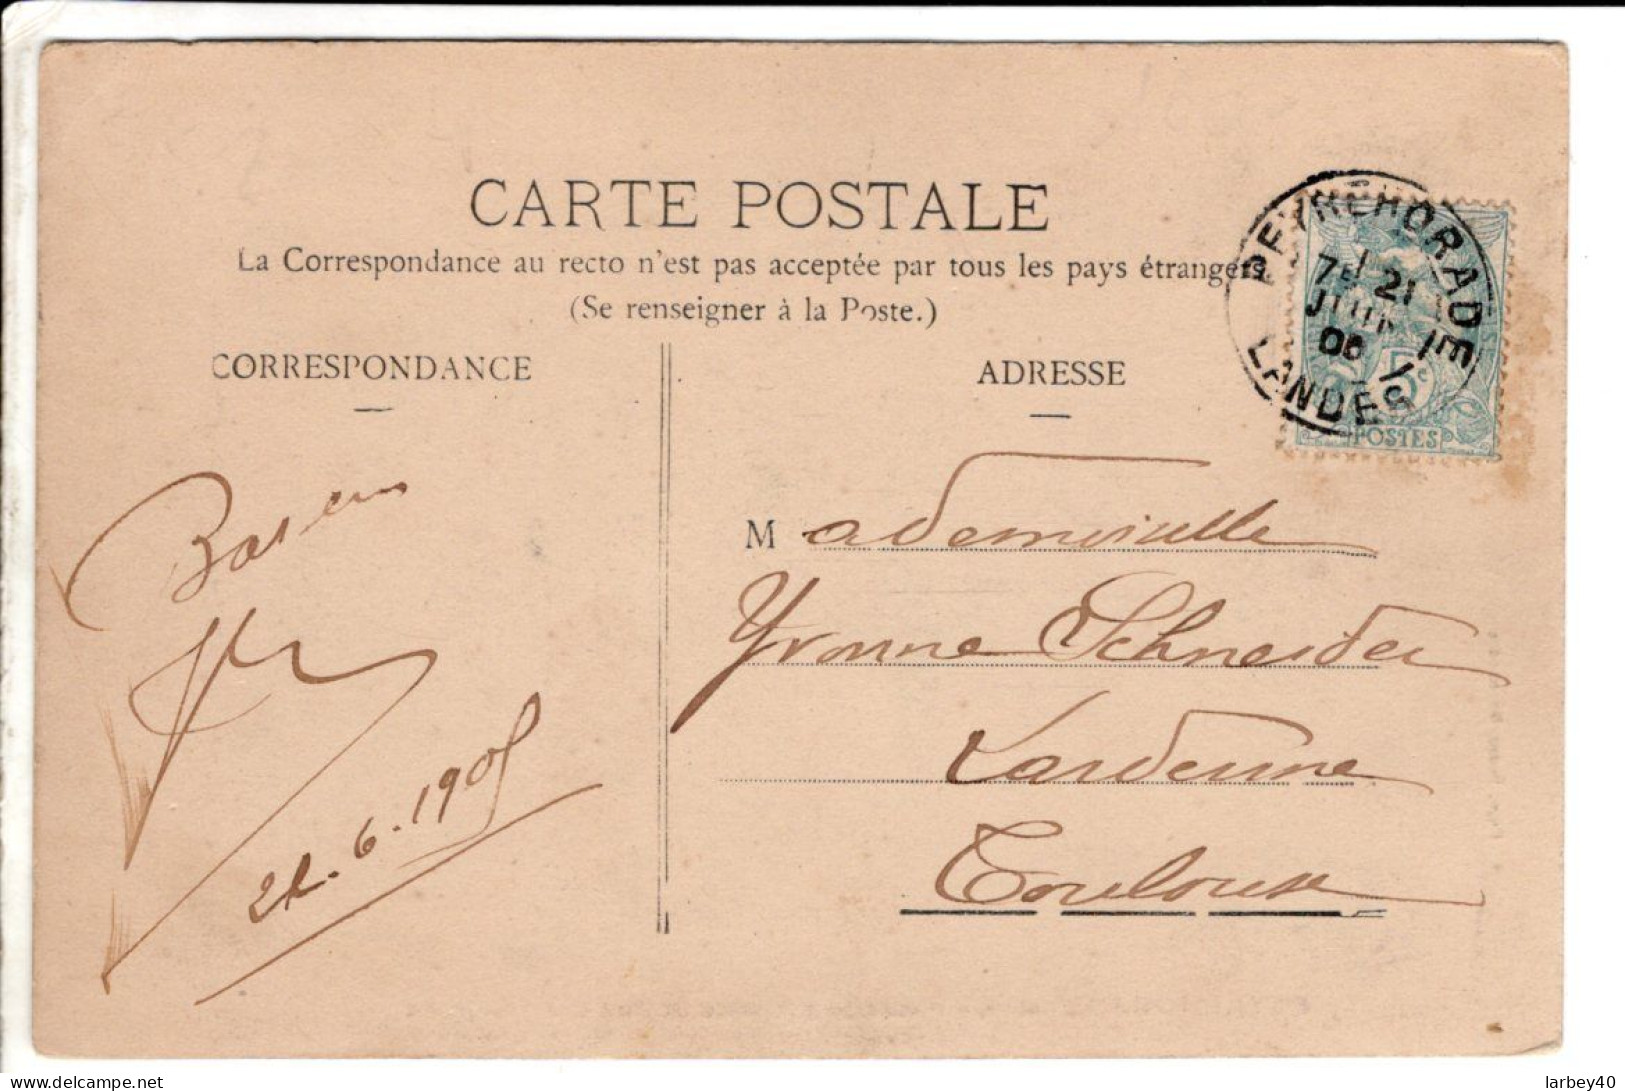 CARTE POSTALE
La Correspondance au recto n'est pas acceptée par tous les pays étrangers
(Se renseigner à la Poste.)
CORRESPONDANCE
ADRESSE
PEYREHORADE
7E 21
JUIN
LANDES
5c
POSTES
21.6.190
Mademoiselle
Yvonne Schneider
Lardenne
Toulouse
delcampe.net
larbey40